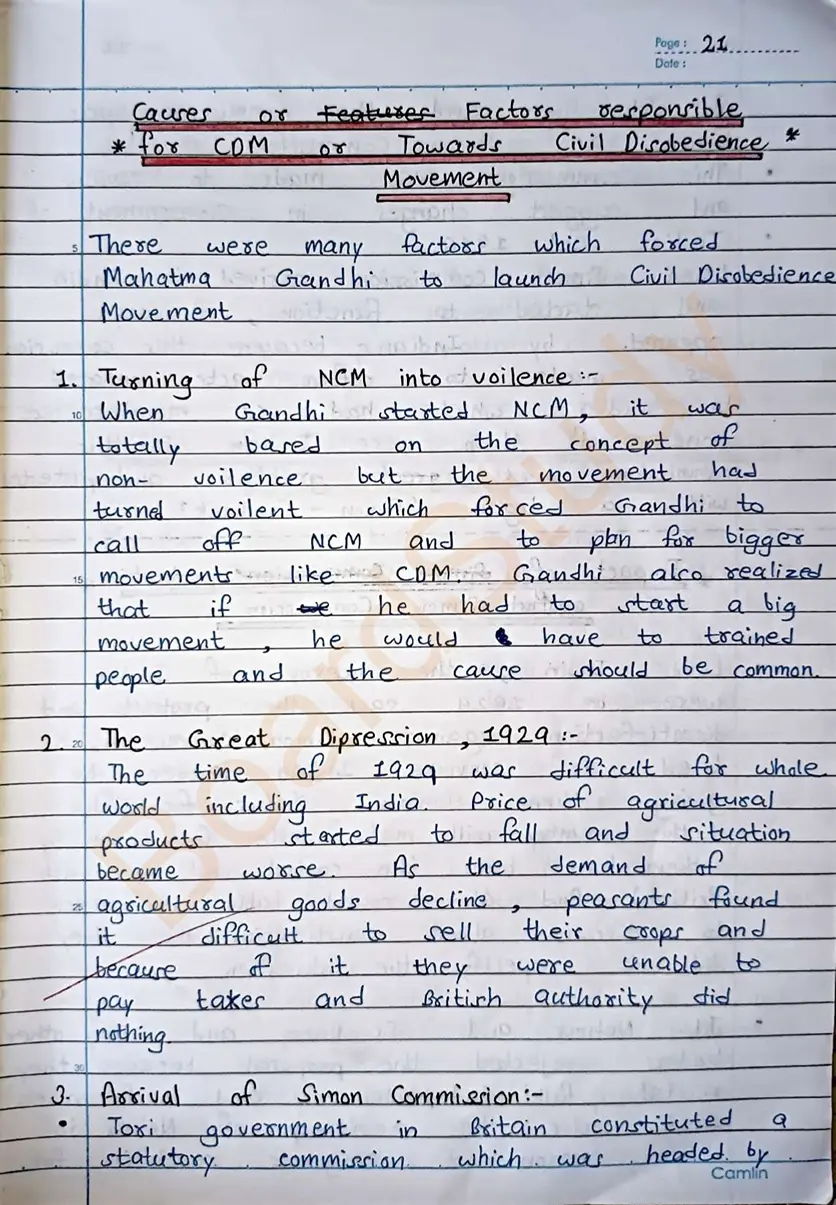 Page: 21
Date:
Causes or Features Factors responsible
* for CDM or Towards Civil Disobedience *
Movement
5 There were many factors which forced
Mahatma Gandhi to launch Civil Disobedience
Movement
1. Turning of NCM into voilence:-
10 When Gandhi started NCM, it was
totally based on the concept of
non- voilence but the movement had
turned voilent which forced Gandhi to
call off NCM and to plan for bigger
15 movements like CDM. Gandhi also realized
that if we he had to start a big
movement, he would have to trained
people and the cause should be common.
2. 20 The Great Dipression, 1929:-
The time of 1929 was difficult for whole
world including India. Price of agricultural
products started to fall and situation
became worse. As the demand of
25 agricultural goods decline, peasants found
it difficult to sell their crops and
because of it they were unable to
pay taxes and British authority did
nothing.
30
3. Arrival of Simon Commission:-
• Tori government in Britain constituted a
statutory commission which was headed by
Camlin
BoardStudy